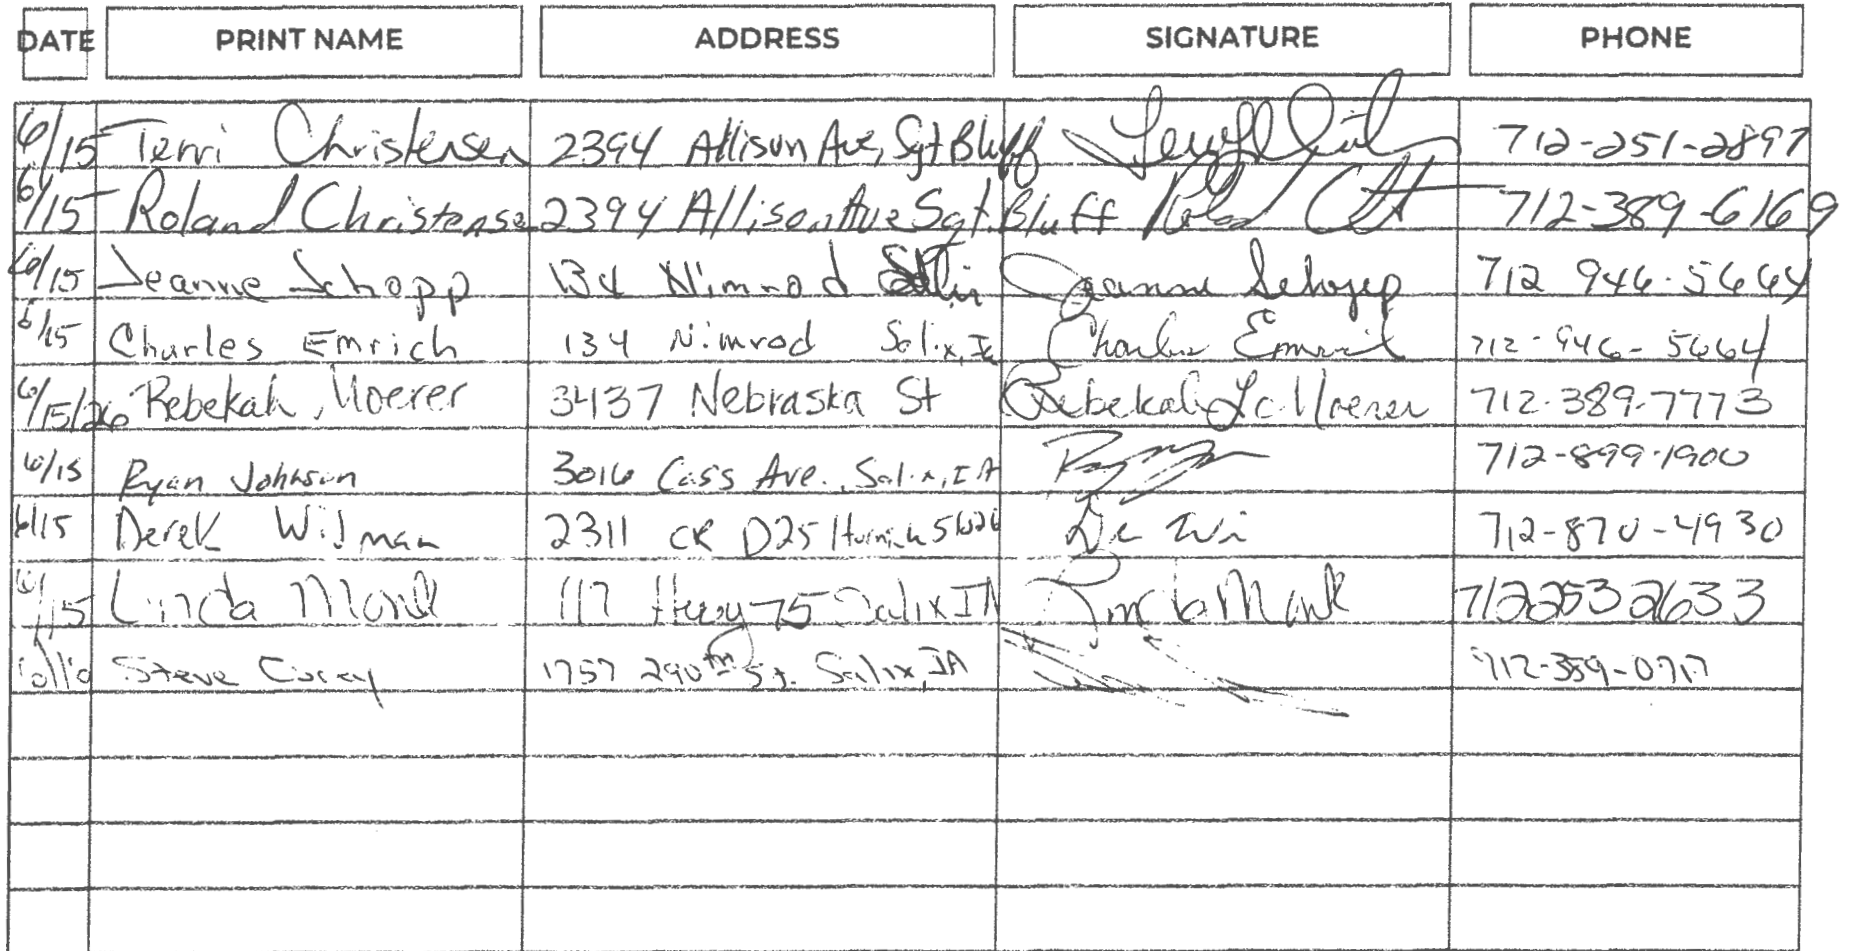 DATE PRINT NAME ADDRESS SIGNATURE PHONE
6/15 Terri Christensen 2394 Allison Ave, Sgt Bluff 712-251-2897
6/15 Roland Christense 2394 Allison Ave Sgt. Bluff 712-389-6169
6/15 Jeanne Schopp 134 Nimrod Jeanne Schopp 712 946-5664
6/15 Charles Emrich 134 Nimrod Salix, Ia Charles Emrich 712-946-5664
6/15/26 Rebekah Moerer 3437 Nebraska St Rebekah Moerer 712-389-7773
6/15 Ryan Johnson 3016 Cass Ave., Salix, IA 712-899-1900
6/15 Derek Widman 2311 CR D25 712-870-4930
6/15 Linda 117 Hwy 75 Salix IA Linda 712 253 2633
Steve 1757 290th St. Salix, IA 712-389-0717